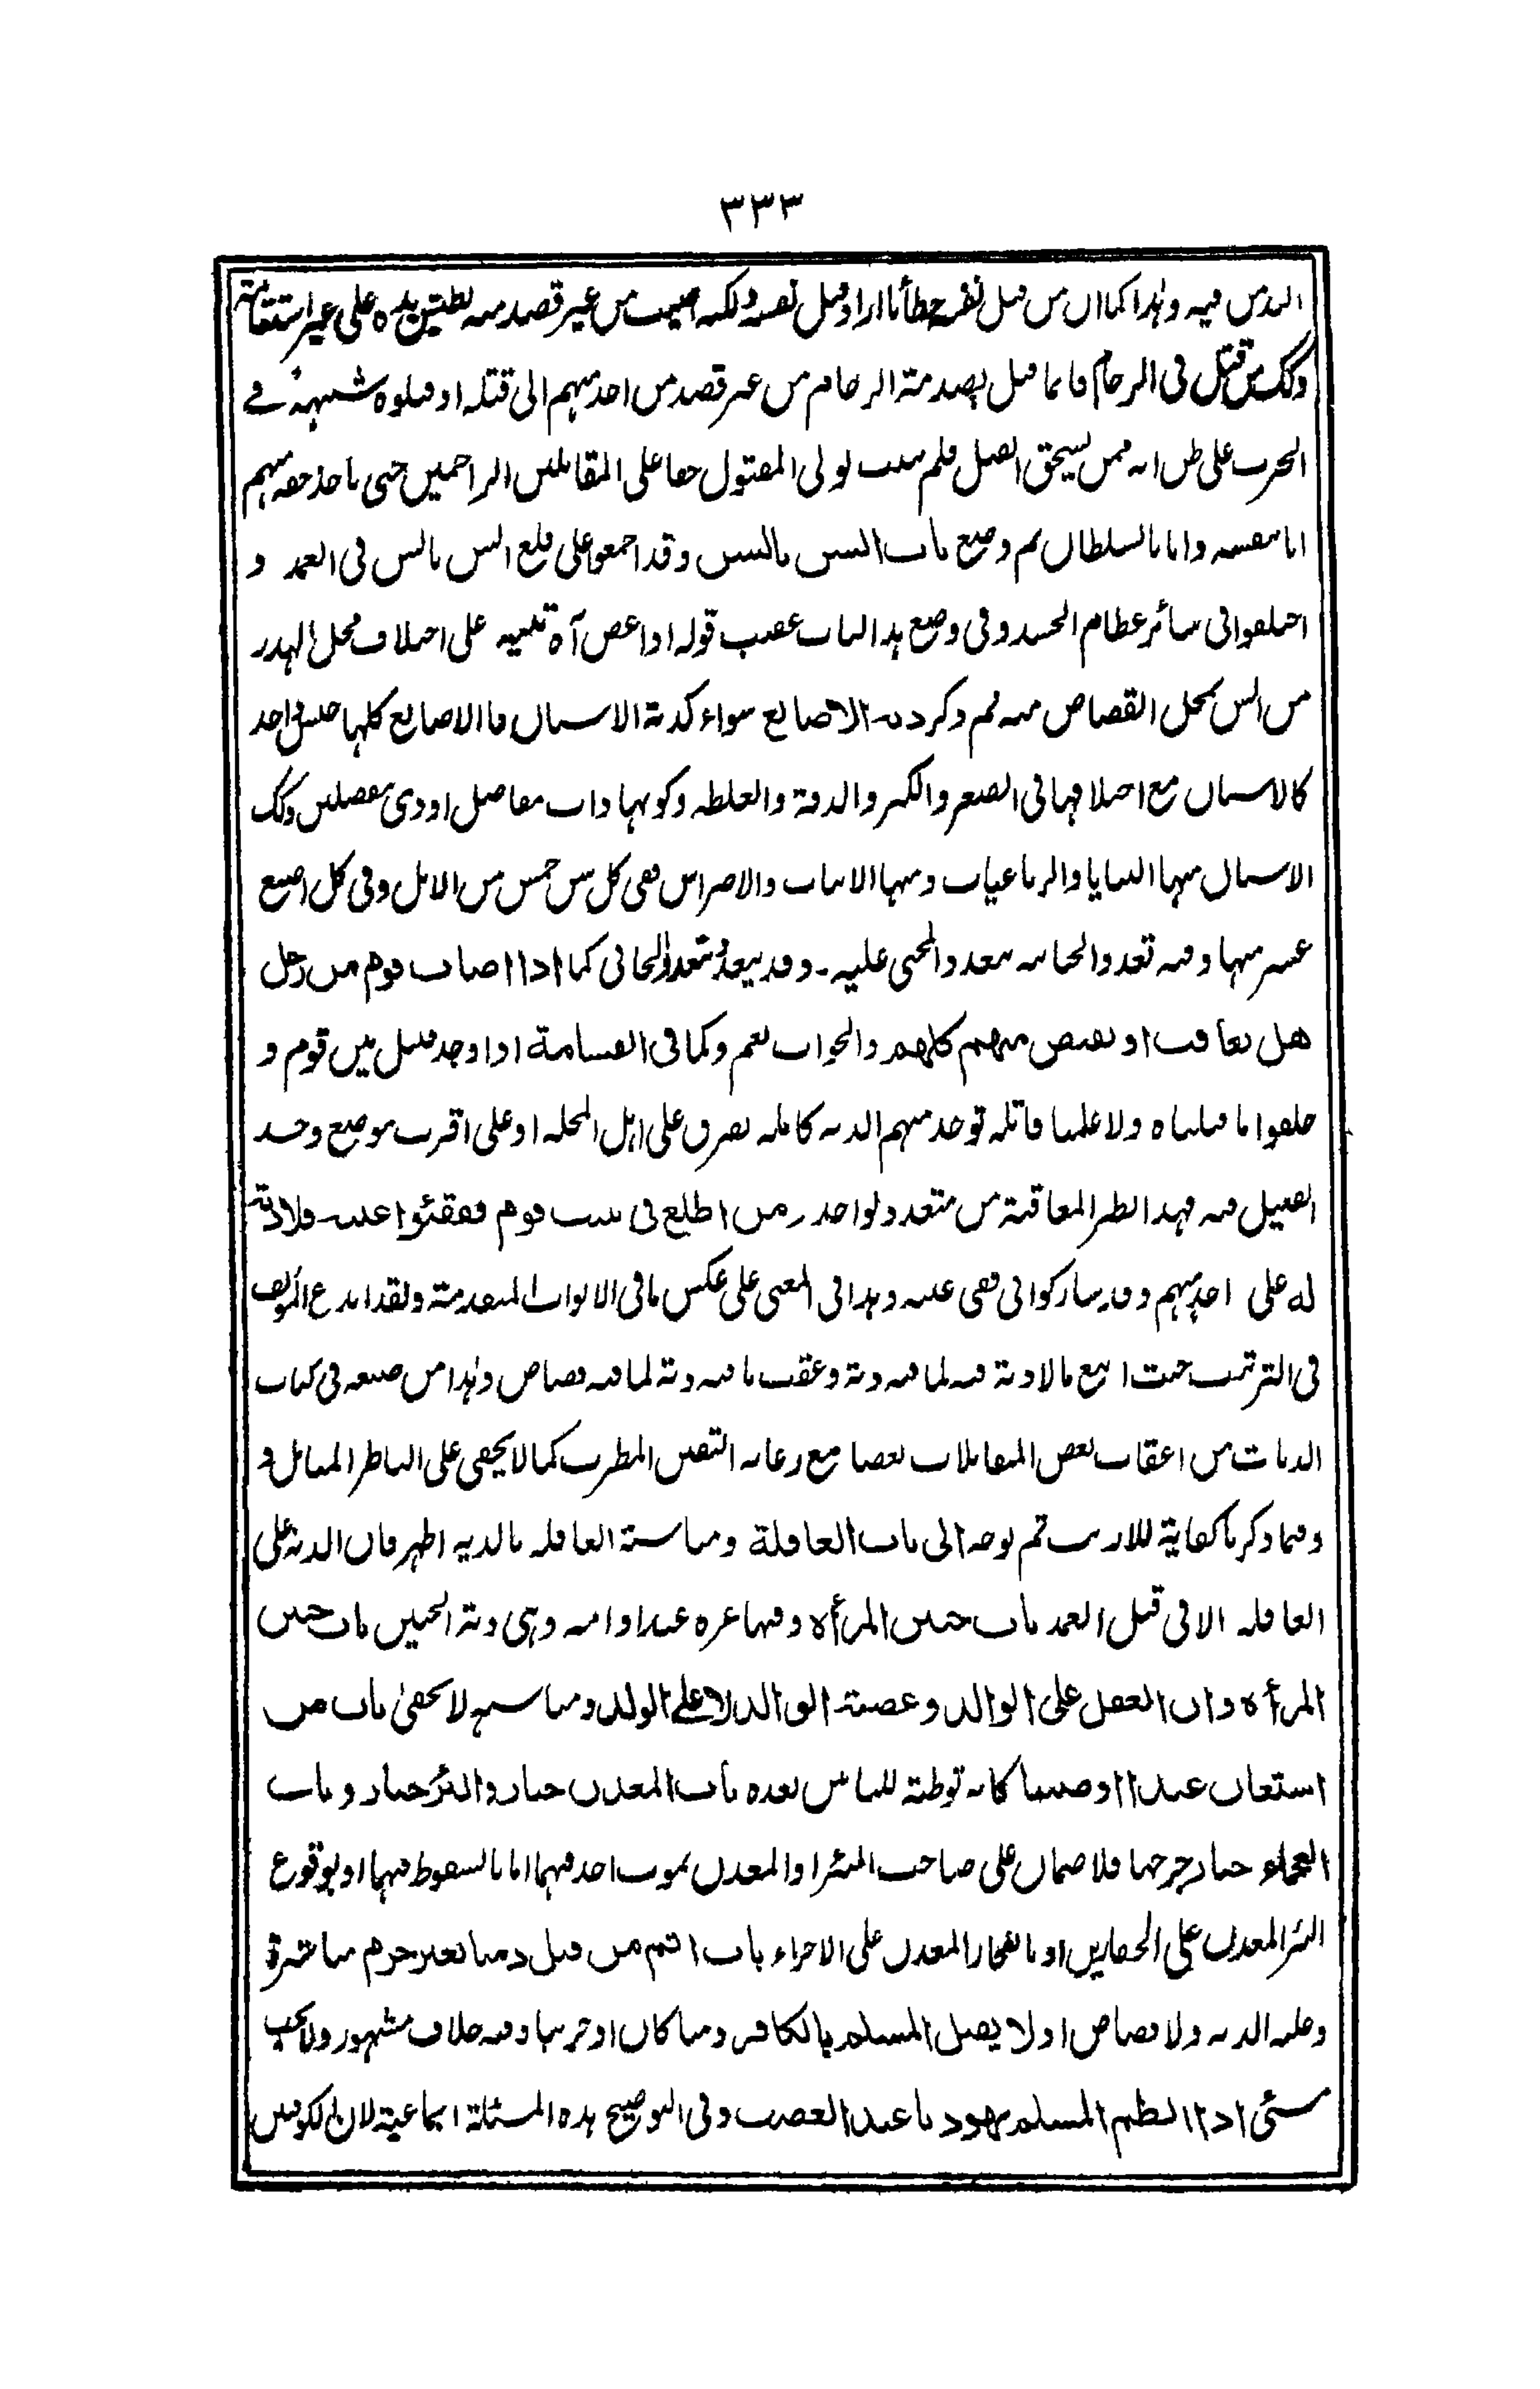 ٣٣٣
الدين فيه وهذا كما ان من قتل نفسه خطأ ما اراد قتل نفسه ولكنه اصيب من غير قصد منه
وكك من قتل فى الزحام فانما قتل بصدمة الزحام من غير قصد من احد منهم الى قتله او قتلوه شبهة فى
الحرب على ظن انه ممن يستحق القتل فلم يثبت لولى المقتول حقا على المقاتلين الزاحمين حتى ياخذ حقه منهم
اما بنفسه واما بالسلطان ثم وضع باب السن بالسن وقد اجمعوا على قلع السن بالسن فى العمد و
اختلفوا فى سائر عظام الجسد وفى وضع هذا الباب عقيب قوله اذا عض آه تنبيه على اختلاف محل الهدر
من السن بمحل القصاص منه ثم ذكر دية الاصابع سواء كدية الاسنان فا الاصابع كلها جنس واحد
كالاسنان مع اختلافها فى الصغر والكبر والدقة والغلظه وكونها ذات مفاصل او ذى مفصلين وكك
الاسنان منها الثنايا والرباعيات ومنها الانياب والاضراس ففى كل سن خمس من الابل وفى كل اصبع
عشر منها وفيه تعدد الجنايه بتعدد المجنى عليه ـ وقد يتعدد الجانى كما اذا اصاب قوم من رجل
هل يعاقب او يقتص منهم كلهم والجواب نعم وكما فى القسامة اذا وجد قتيل بين قوم و
حلفوا ما قتلناه ولا علمنا قاتله توخذ منهم الديه كامله تصرف على اهل المحله او على اقرب موضع وجد
القتيل فيه فهذا نظير المعاقبة من متعدد لواحد ـ من اطلع فى بيت قوم ففقئوا عينه فلا دية
له على احد منهم وقد شاركوا فى فقى عينه وهذا فى المعنى على عكس ما فى الابواب المتقدمة ولقد ابدع المؤلف
فى الترتيب حيث اتبع ما لا دية فيه لما فيه دية وعقب ما فيه دية لما فيه قصاص وهذا من صنعه فى كتاب
الديات من اعقاب بعض المتقابلات بعضا مع رعايه التفنن المطرب كما لا يخفى على الناظر المتامل
وفيما ذكرنا كفاية للاريب ثم توجه الى باب العاقلة ومناسبة العاقله بالديه اظهر فان الدية على
العاقله الا فى قتل العمد باب جنين المرأة وفيها غره عبد او امه وهى دية الجنين باب جنين
المرأة وان العقل على الوالد وعصبة الوالد لا على الولد ومناسبته لا تخفى باب من
استعان عبدا او صبيا كانه توطئة للبابين بعده باب المعدن جبار والبئر جبار وباب
العجماء جبار جرحها فلا ضمان على صاحب البئر او المعدن بموت احد فيهما اما بالسقوط فيها او بوقوع
البئر المعدن على الحفارين او بانفجار المعدن على الاجراء باب اثم من قتل ذميا بغير جرم مباشرة
وعليه الديه ولا قصاص او لا يقتل المسلم بالكافر ذميا كان او حربيا وفيه خلاف مشهور ولا يجب
شئى اذا لطم المسلم يهوديا عند الغضب وفى التوضيح هذه المسئلة اجماعية لان الكوفيين